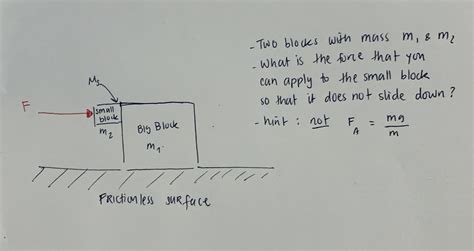 - Two blocks with mass m₁ & m₂
- What is the force that you
can apply to the small block
so that it does not slide down?
- hint : not F_A = mg/m
F
small
block
m₂
Big Block
m₁
Frictionless surface